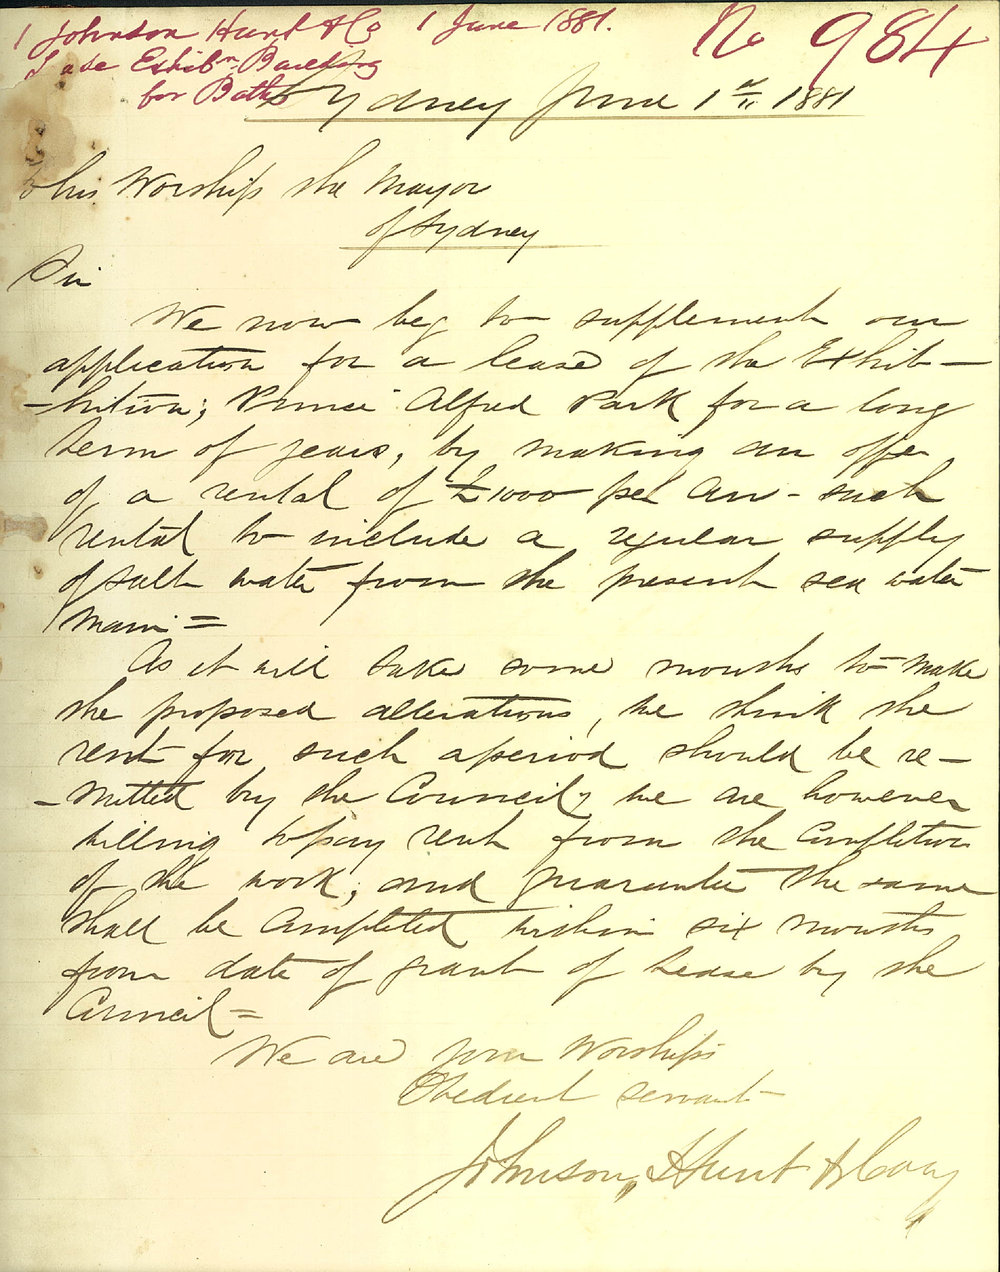 1 Johnson Hunt & Co 1 June 1881. No 984
Late Exhibn. Building
for Baths
Sydney June 1st 1881
To his Worship the Mayor
of Sydney
Sir
We now beg to supplement our
application for a lease of the Exhib-
-bition; Prince Alfred Park for a long
term of years, by making an offer
of a rental of £1000 per an - such
rental to include a regular supply
of salt water from the present sea water
main =
As it will take some months to make
the proposed alterations, we think the
rent for such a period should be re-
-mitted by the Council, we are however
willing to pay rent from the completion
of the work, and guarantee the same
shall be completed within six months
from date of grant of Lease by the
Council =
We are your Worships
Obedient servants
Johnson, Hunt & Coay